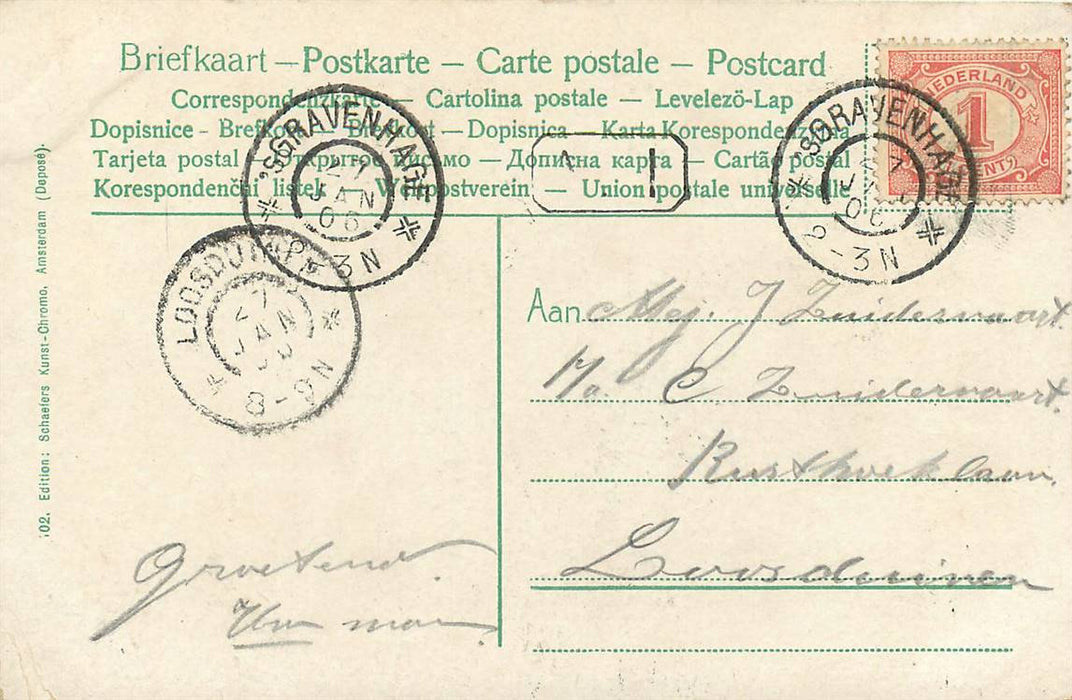 Briefkaart — Postkarte — Carte postale — Postcard
Correspondenzkarte — Cartolina postale — Levelezö-Lap
Dopisnice - Brefkort — — Dopisnica — Karta Korespondenz
Tarjeta postal — Открытое письмо — Дописна карта — Cartão postal
Korespondenčni listek — Weltpostverein — Union postale universelle
NEDERLAND
1
CENT
'SGRAVENHAGE
27
JAN
06
2-3N
'SGRAVENHAGE
7
06
2-3N
1
LOOSDUINEN
27
JAN
8-9N
Aan Mej. J Zuidervaart.
C. Zuidervaart.
Rusthoeklaan.
Loosduinen
Groetend.
102. Edition: Schaefers Kunst-Chromo. Amsterdam (Deposé).